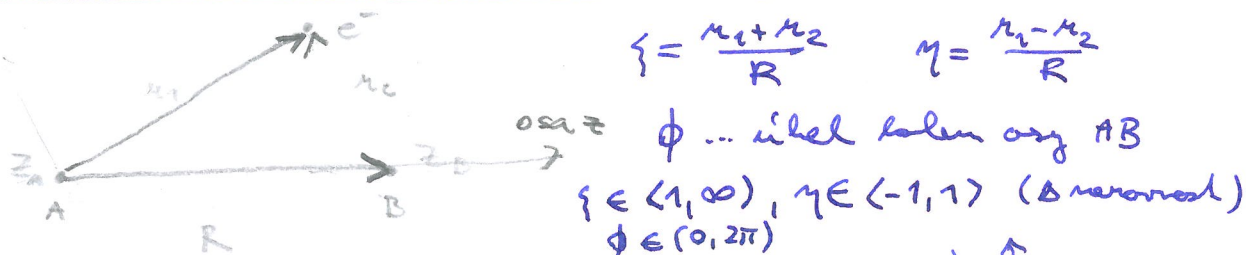 e⁻
r₁
r₂
Z_A
Z_B
osa z
A
B
R
ξ = (r₁+r₂)/R    η = (r₁-r₂)/R
ϕ ... úhel kolem osy AB
ξ ∈ <1,∞), η ∈ <-1,1> (Δ nerovnost)
ϕ ∈ (0,2π)